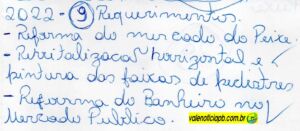 2022 - 9 Requerimentos.
- Reforma do mercado do Peixe.
- Revitalizaca horizontal e
pintura das faixas de pedestres
- Reforma do Banheiro no
Mercado Publico.
valenoticiapb.com.br